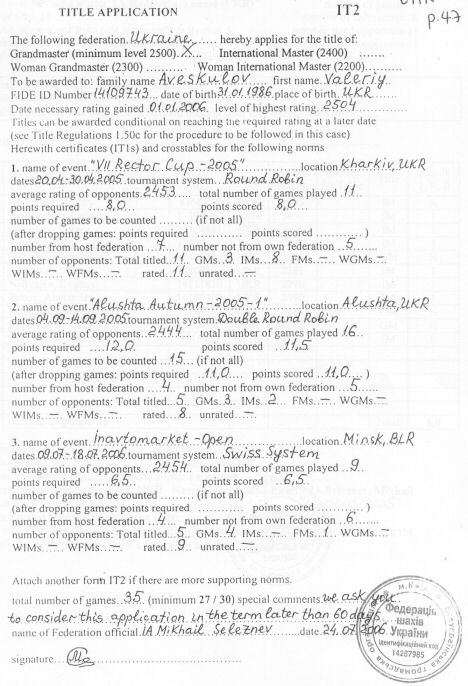 TITLE APPLICATION IT2
p.47
The following federation Ukraine hereby applies for the title of:
Grandmaster (minimum level 2500) X International Master (2400) .......
Woman Grandmaster (2300) .......... Woman International Master (2200)..........
To be awarded to: family name Aveskulov first name Valeriy
FIDE ID Number 14109743 date of birth 31.01.1986, place of birth UKR
Date necessary rating gained 01.01.2006. level of highest rating 2504
Titles can be awarded conditional on reaching the required rating at a later date
(see Title Regulations 1.50c for the procedure to be followed in this case)
Herewith certificates (IT1s) and crosstables for the following norms
1. name of event "VII Rector Cup - 2005" location Kharkiv, UKR
dates 20.04-30.04.2005 tournament system Round Robin
average rating of opponents 2453 total number of games played 11
points required 8,0 points scored 8,0
number of games to be counted ......... (if not all)
(after dropping games: points required ............ points scored ............ )
number from host federation 7 number not from own federation 5
number of opponents: Total titled 11 GMs 3 IMs 8 FMs — WGMs —
WIMs — WFMs — rated 11 unrated —
2. name of event "Alushta Autumn-2005-1" location Alushta, UKR
dates 04.09-14.09.2005 tournament system Double Round Robin
average rating of opponents 2444 total number of games played 16
points required 12,0 points scored 11,5
number of games to be counted 15 (if not all)
(after dropping games: points required 11,0 points scored 11,0 )
number from host federation 4 number not from own federation 5
number of opponents: Total titled 5 GMs 3 IMs 2 FMs — WGMs —
WIMs — WFMs — rated 8 unrated —
3. name of event Inavtomarket-Open location Minsk, BLR
dates 09.07-18.07.2006 tournament system Swiss System
average rating of opponents 2454 total number of games played 9
points required 6,5 points scored 6,5
number of games to be counted ......... (if not all)
(after dropping games: points required ............ points scored ............ )
number from host federation 4 number not from own federation 6
number of opponents: Total titled 5 GMs 4 IMs — FMs 1 WGMs —
WIMs — WFMs — rated 9 unrated —
Attach another form IT2 if there are more supporting norms.
total number of games 35 (minimum 27 / 30) special comments we ask you
to consider this application in the term later than 60 days
name of Federation official IA Mikhail Seleznev date 24.07.2006
signature
Федерація
шахів
України
Ідентифікаційний код
14287985